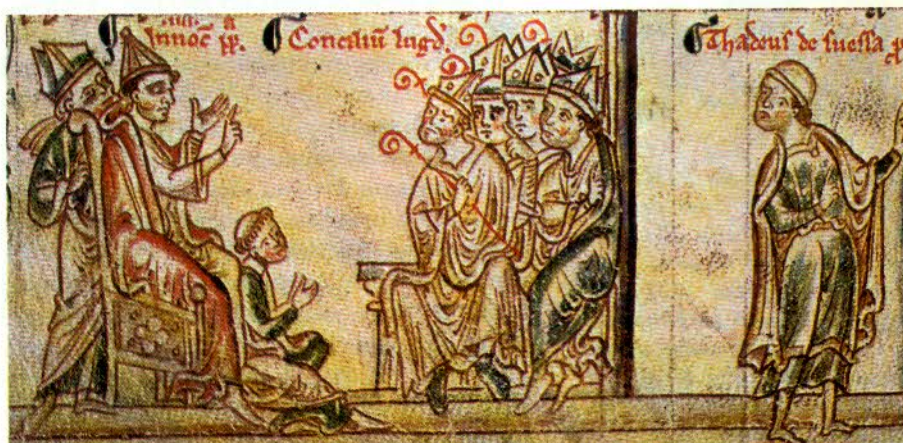 Innoc̄ pp.
Conciliū lugd'.
Thadeus de suessa